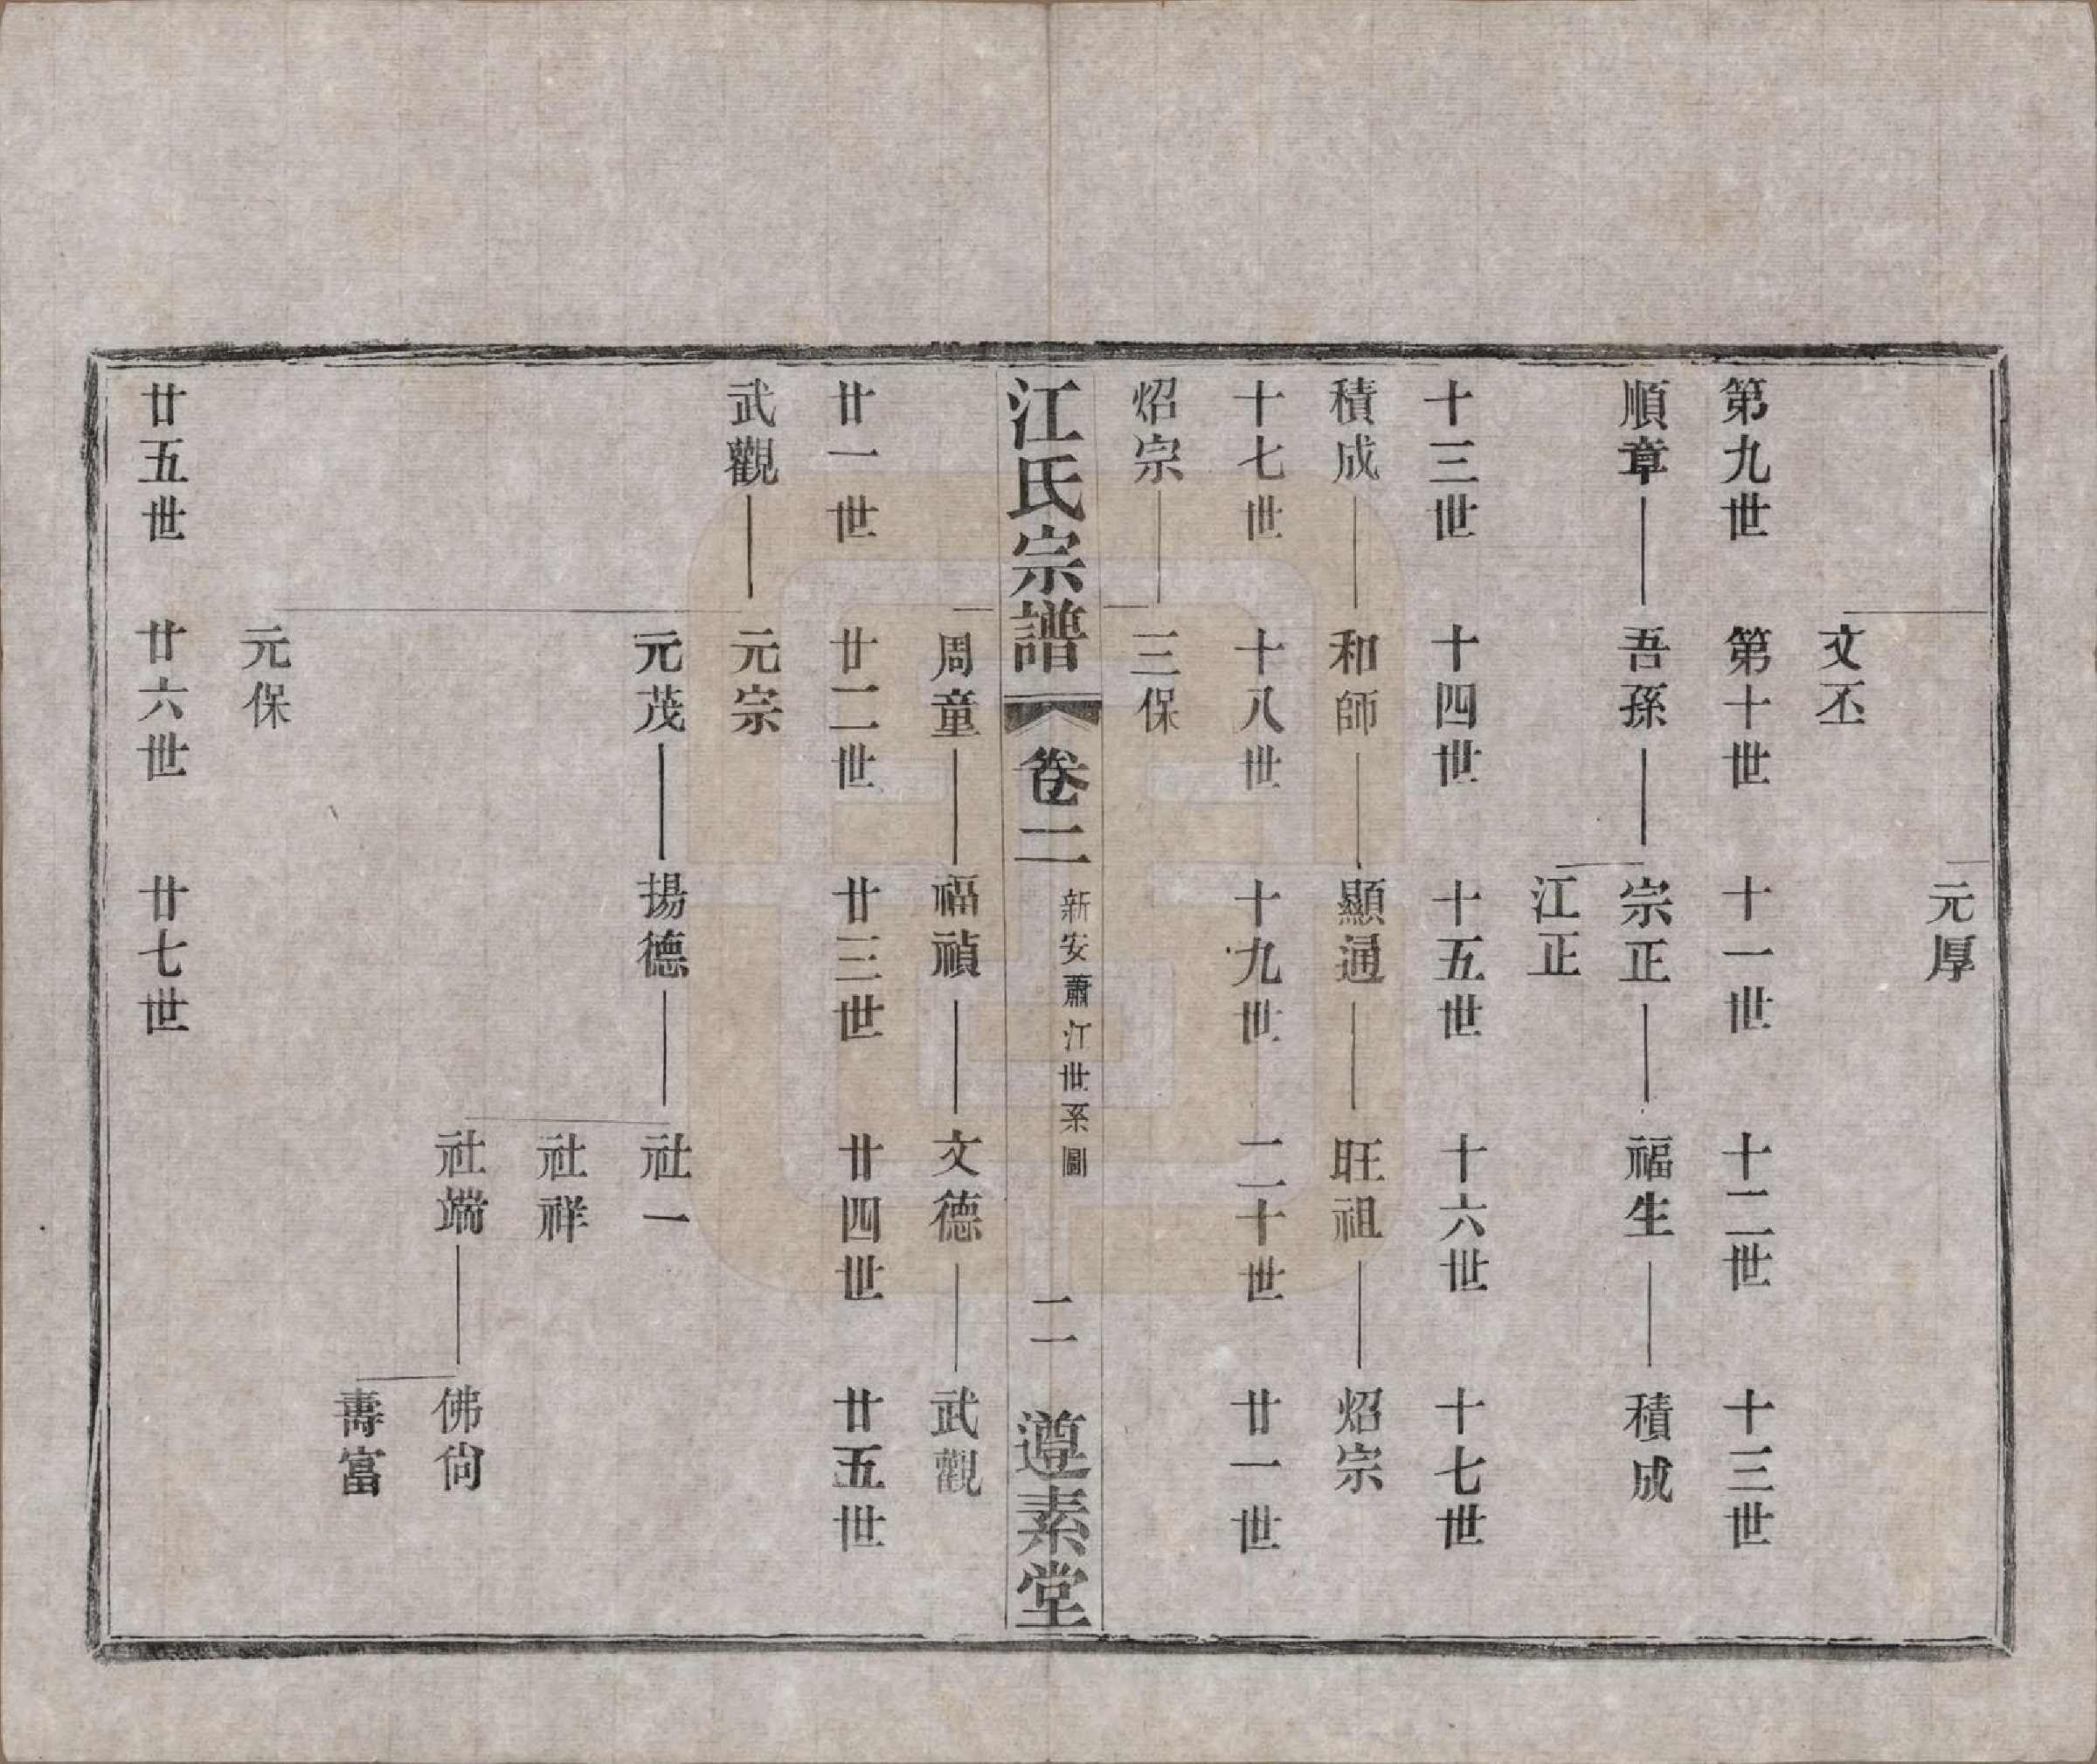 元厚
文丕
第九世　第十世　十一世　十二世　十三世
順章　吾孫　宗正　福生　積成
江正
十三世　十四世　十五世　十六世　十七世
積成　和師　顯通　旺祖　炤宗
十七世　十八世　十九世　二十世　廿一世
炤宗　三保
江氏宗譜　卷二　新安蕭江世系圖　二　遵素堂
周童　福禎　文德　武觀
廿一世　廿二世　廿三世　廿四世　廿五世
武觀　元宗
元茂　揚德　社一
社祥
社端　佛尙
壽富
元保
廿五世　廿六世　廿七世